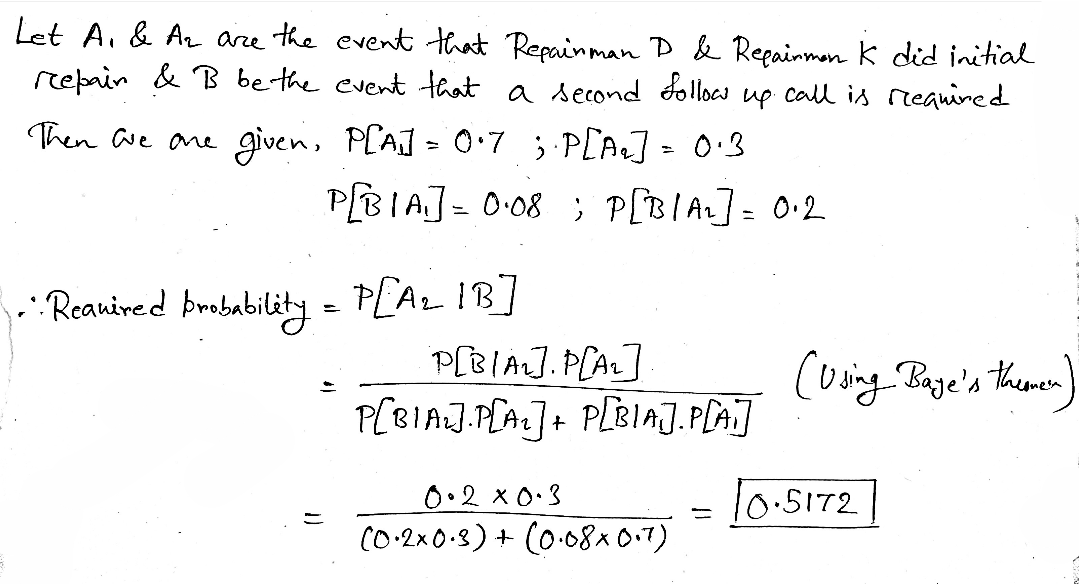 Let A₁ & A₂ are the event that Repairman D & Repairman K did initial
repair & B be the event that a second follow up call is required
Then we are given, P[A₁] = 0.7 ; P[A₂] = 0.3
P[B|A₁] = 0.08 ; P[B|A₂] = 0.2
∴ Required probability = P[A₂ | B]
= P[B|A₂].P[A₂] / P[B|A₂].P[A₂] + P[B|A₁].P[A₁] (Using Baye's theorem)
= 0.2 x 0.3 / (0.2x0.3) + (0.08x0.7) = 0.5172